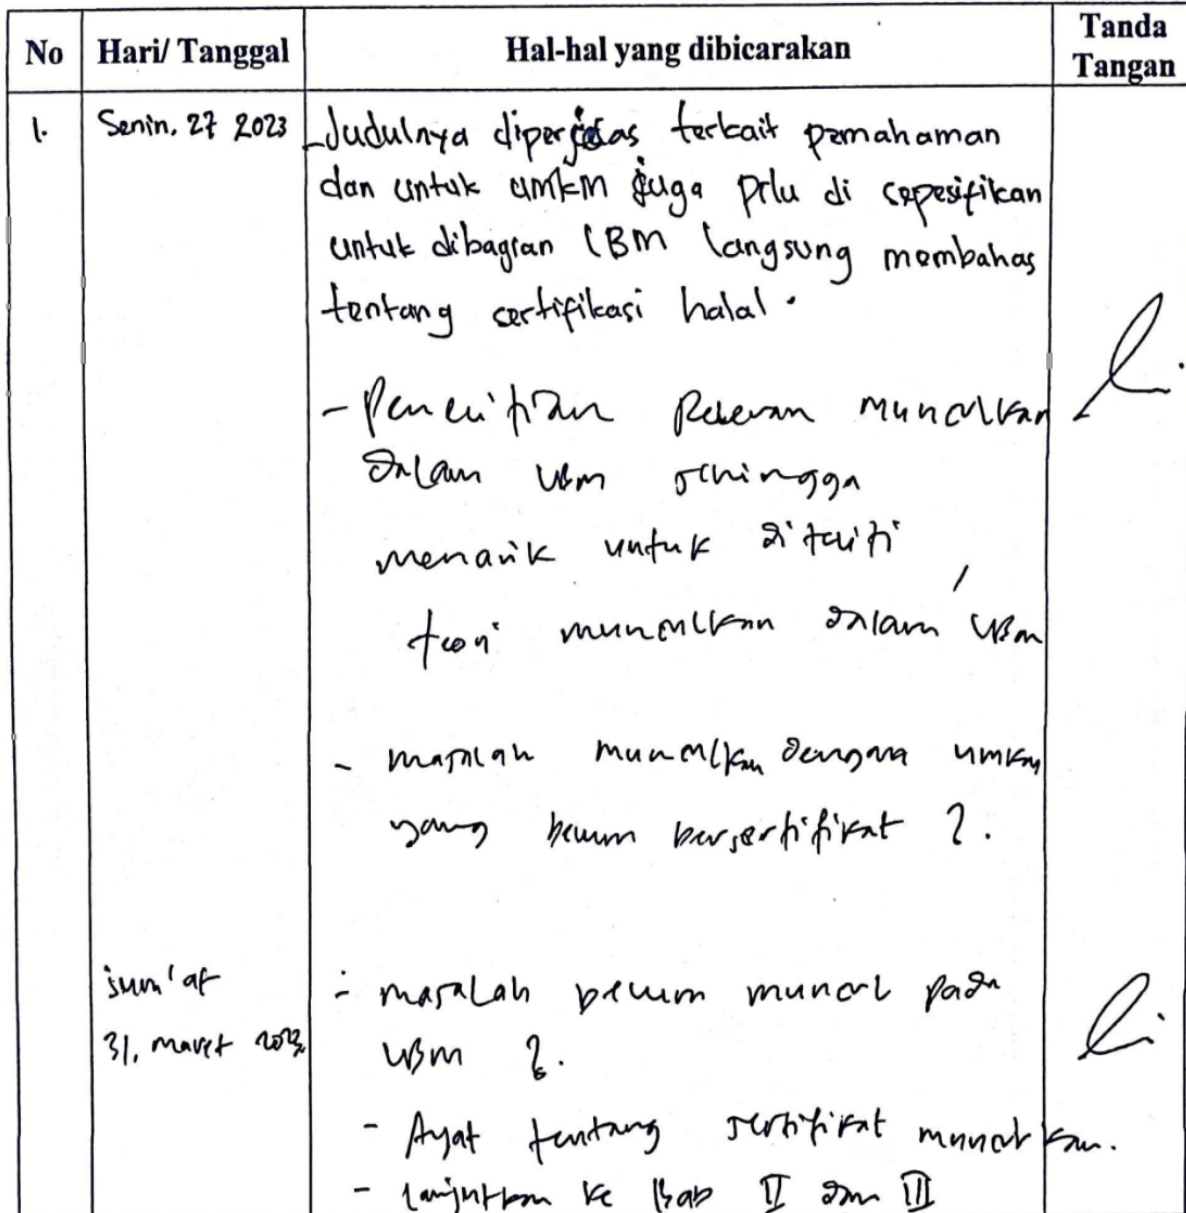 No Hari/ Tanggal Hal-hal yang dibicarakan Tanda Tangan
1. Senin, 27 2023 - Judulnya diperjelas terkait pemahaman
dan untuk umkm juga prlu di sepesifikan
untuk dibagian LBM langsung membahas
tentang sertifikasi halal.
- Penelitian Relevan munculkan
dalam LBM sehingga
menarik untuk diteliti
teori munculkan dalam LBM
- masalah munculkan dengan umkm
yang belum bersertifikat ?.
Jum'at - masalah belum muncul pada
31, maret 2023 LBM ?.
- Ayat tentang sertifikat munculkan.
- lanjutkan ke Bab II dan III